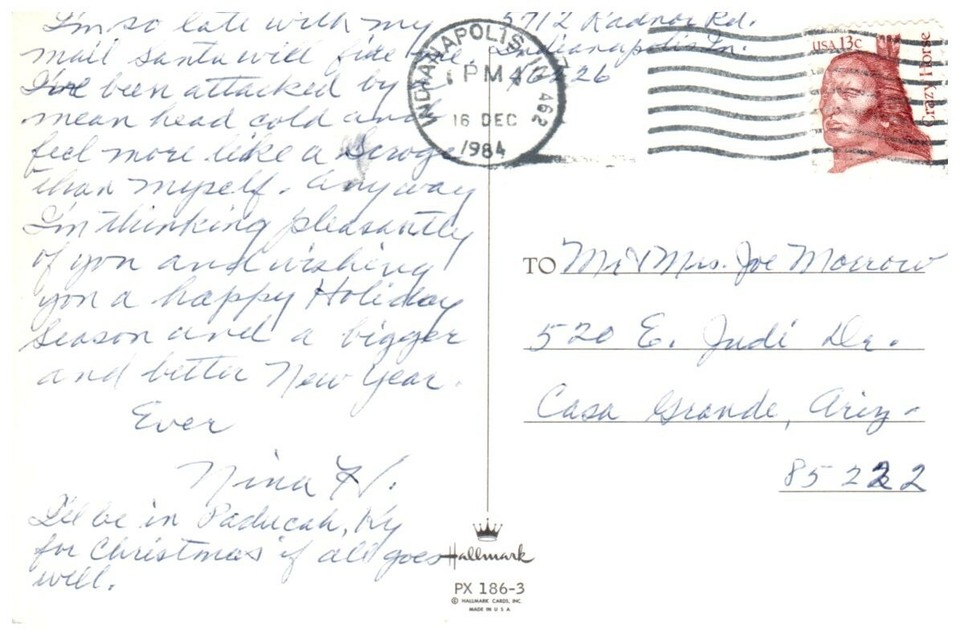 I'm so late with my
mail santa will fire me.
I've been attacked by a
mean head cold and
feel more like a Scroge
than myself. Anyway
I'm thinking pleasantly
of you and wishing
you a happy Holiday
Season and a bigger
and better New Year.
Ever
Nina H.
I'll be in Paducah, Ky
for Christmas if all goes
will.
5712 Radnor Rd.
Indianapolis In.
46226
INDIANAPOLIS, IN 462
PM
16 DEC
1984
USA 13c
Crazy Horse
TO Mr & Mrs. Joe Morrow
520 E. Judi Dr.
Casa Grande, Ariz-
85222
Hallmark
PX 186-3
© HALLMARK CARDS, INC.
MADE IN U.S.A.